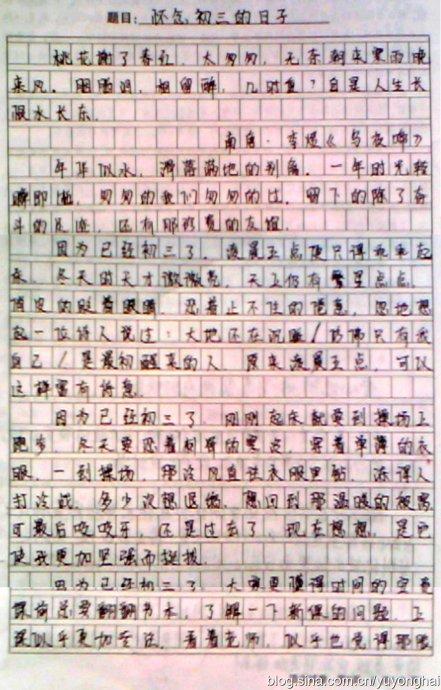 题目：怀念初三的日子
桃花谢了春红，太匆匆，无奈朝来寒雨晚
来风。胭脂泪，相留醉，几时重？自是人生长
恨水长东。
南唐·李煜《乌夜啼》
年华似水，滑落满地的别离。一年时光转
瞬即逝，匆匆的我们匆匆的过，留下的除了奋
斗的足迹，还有那珍贵的友谊。
因为已经初三了，凌晨五点便只得乖乖起
床。冬天的天才微微亮，天上仍有繁星点点。
的眨着眼睛，忍着止不住的倦意，忽地想
起一位诗人说过：大地还在沉睡/仿佛只有我
自己/是最初醒来的人。原来凌晨五点，可以
这样富有诗意。
因为已经初三了，刚刚起床就要到操场上
跑步。冬天要忍着刺骨的寒冷，穿着单薄的衣
服，一到操场，那冷风直往衣服里钻，冻得人
打冷战。多少次想退缩，想回到那温暖的被窝，
可最后咬咬牙，还是过去了。现在想想，是它
使我更加坚强而挺拔。
因为已经初三了，大家更懂得时间的宝贵
课前总要翻翻书本，了解一下新课的问题。上
课似乎更加专注，看着老师，似乎也觉得那眼
blog.sina.com.cn/yuyonghai